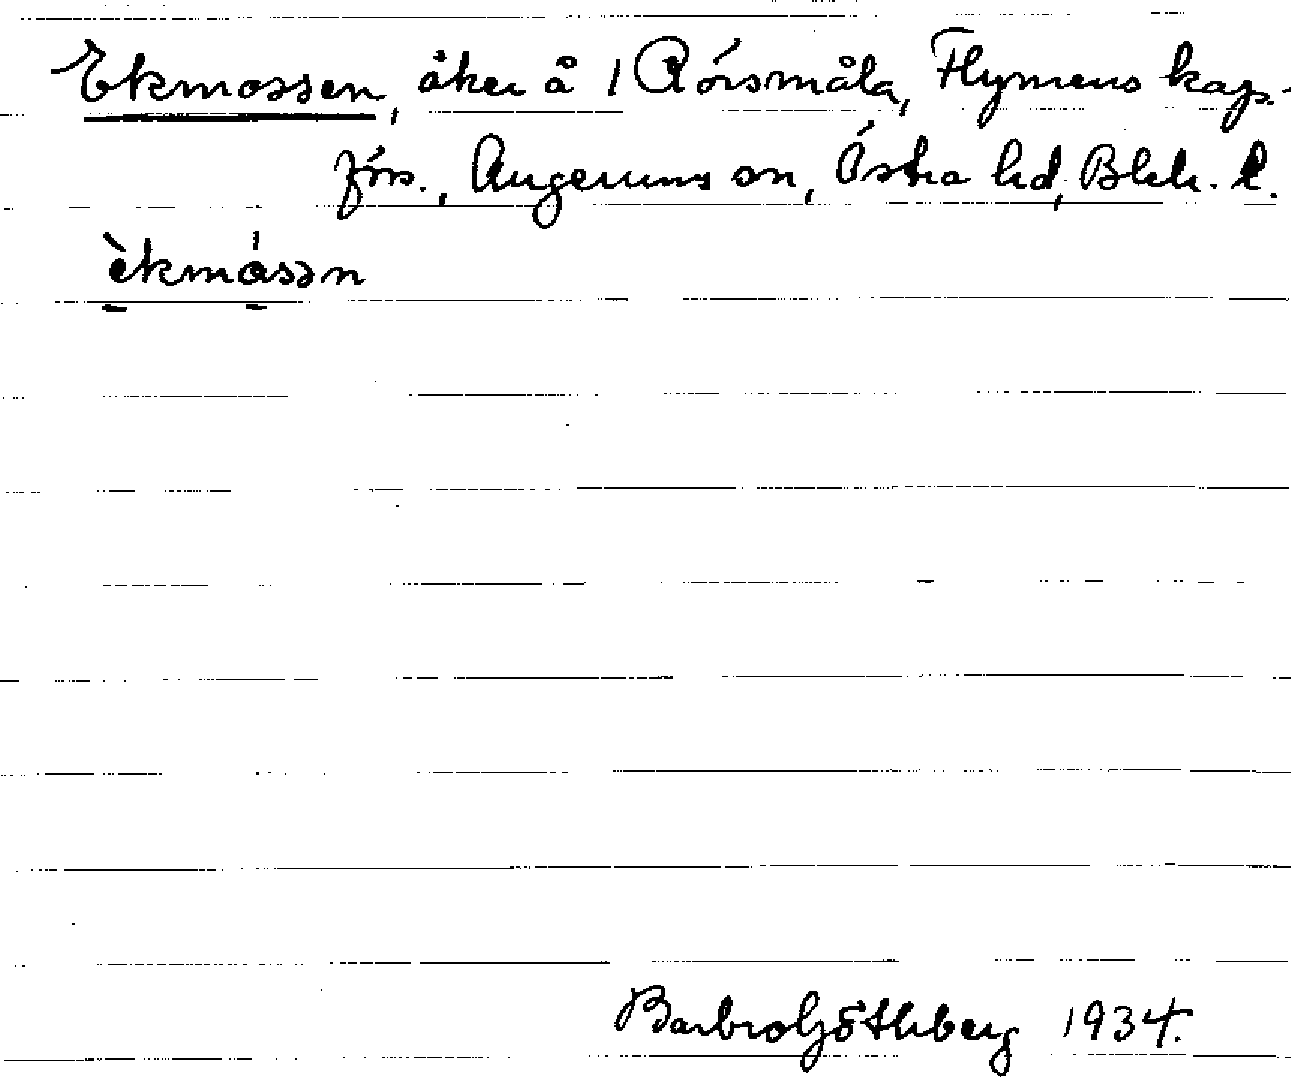 Ekmossen, åker å 1 Rörsmåla, Flymens kap.-
förs., Augerums sn, Östra hd, Blek. l.
èkmósən
Barbro Göthberg 1934.